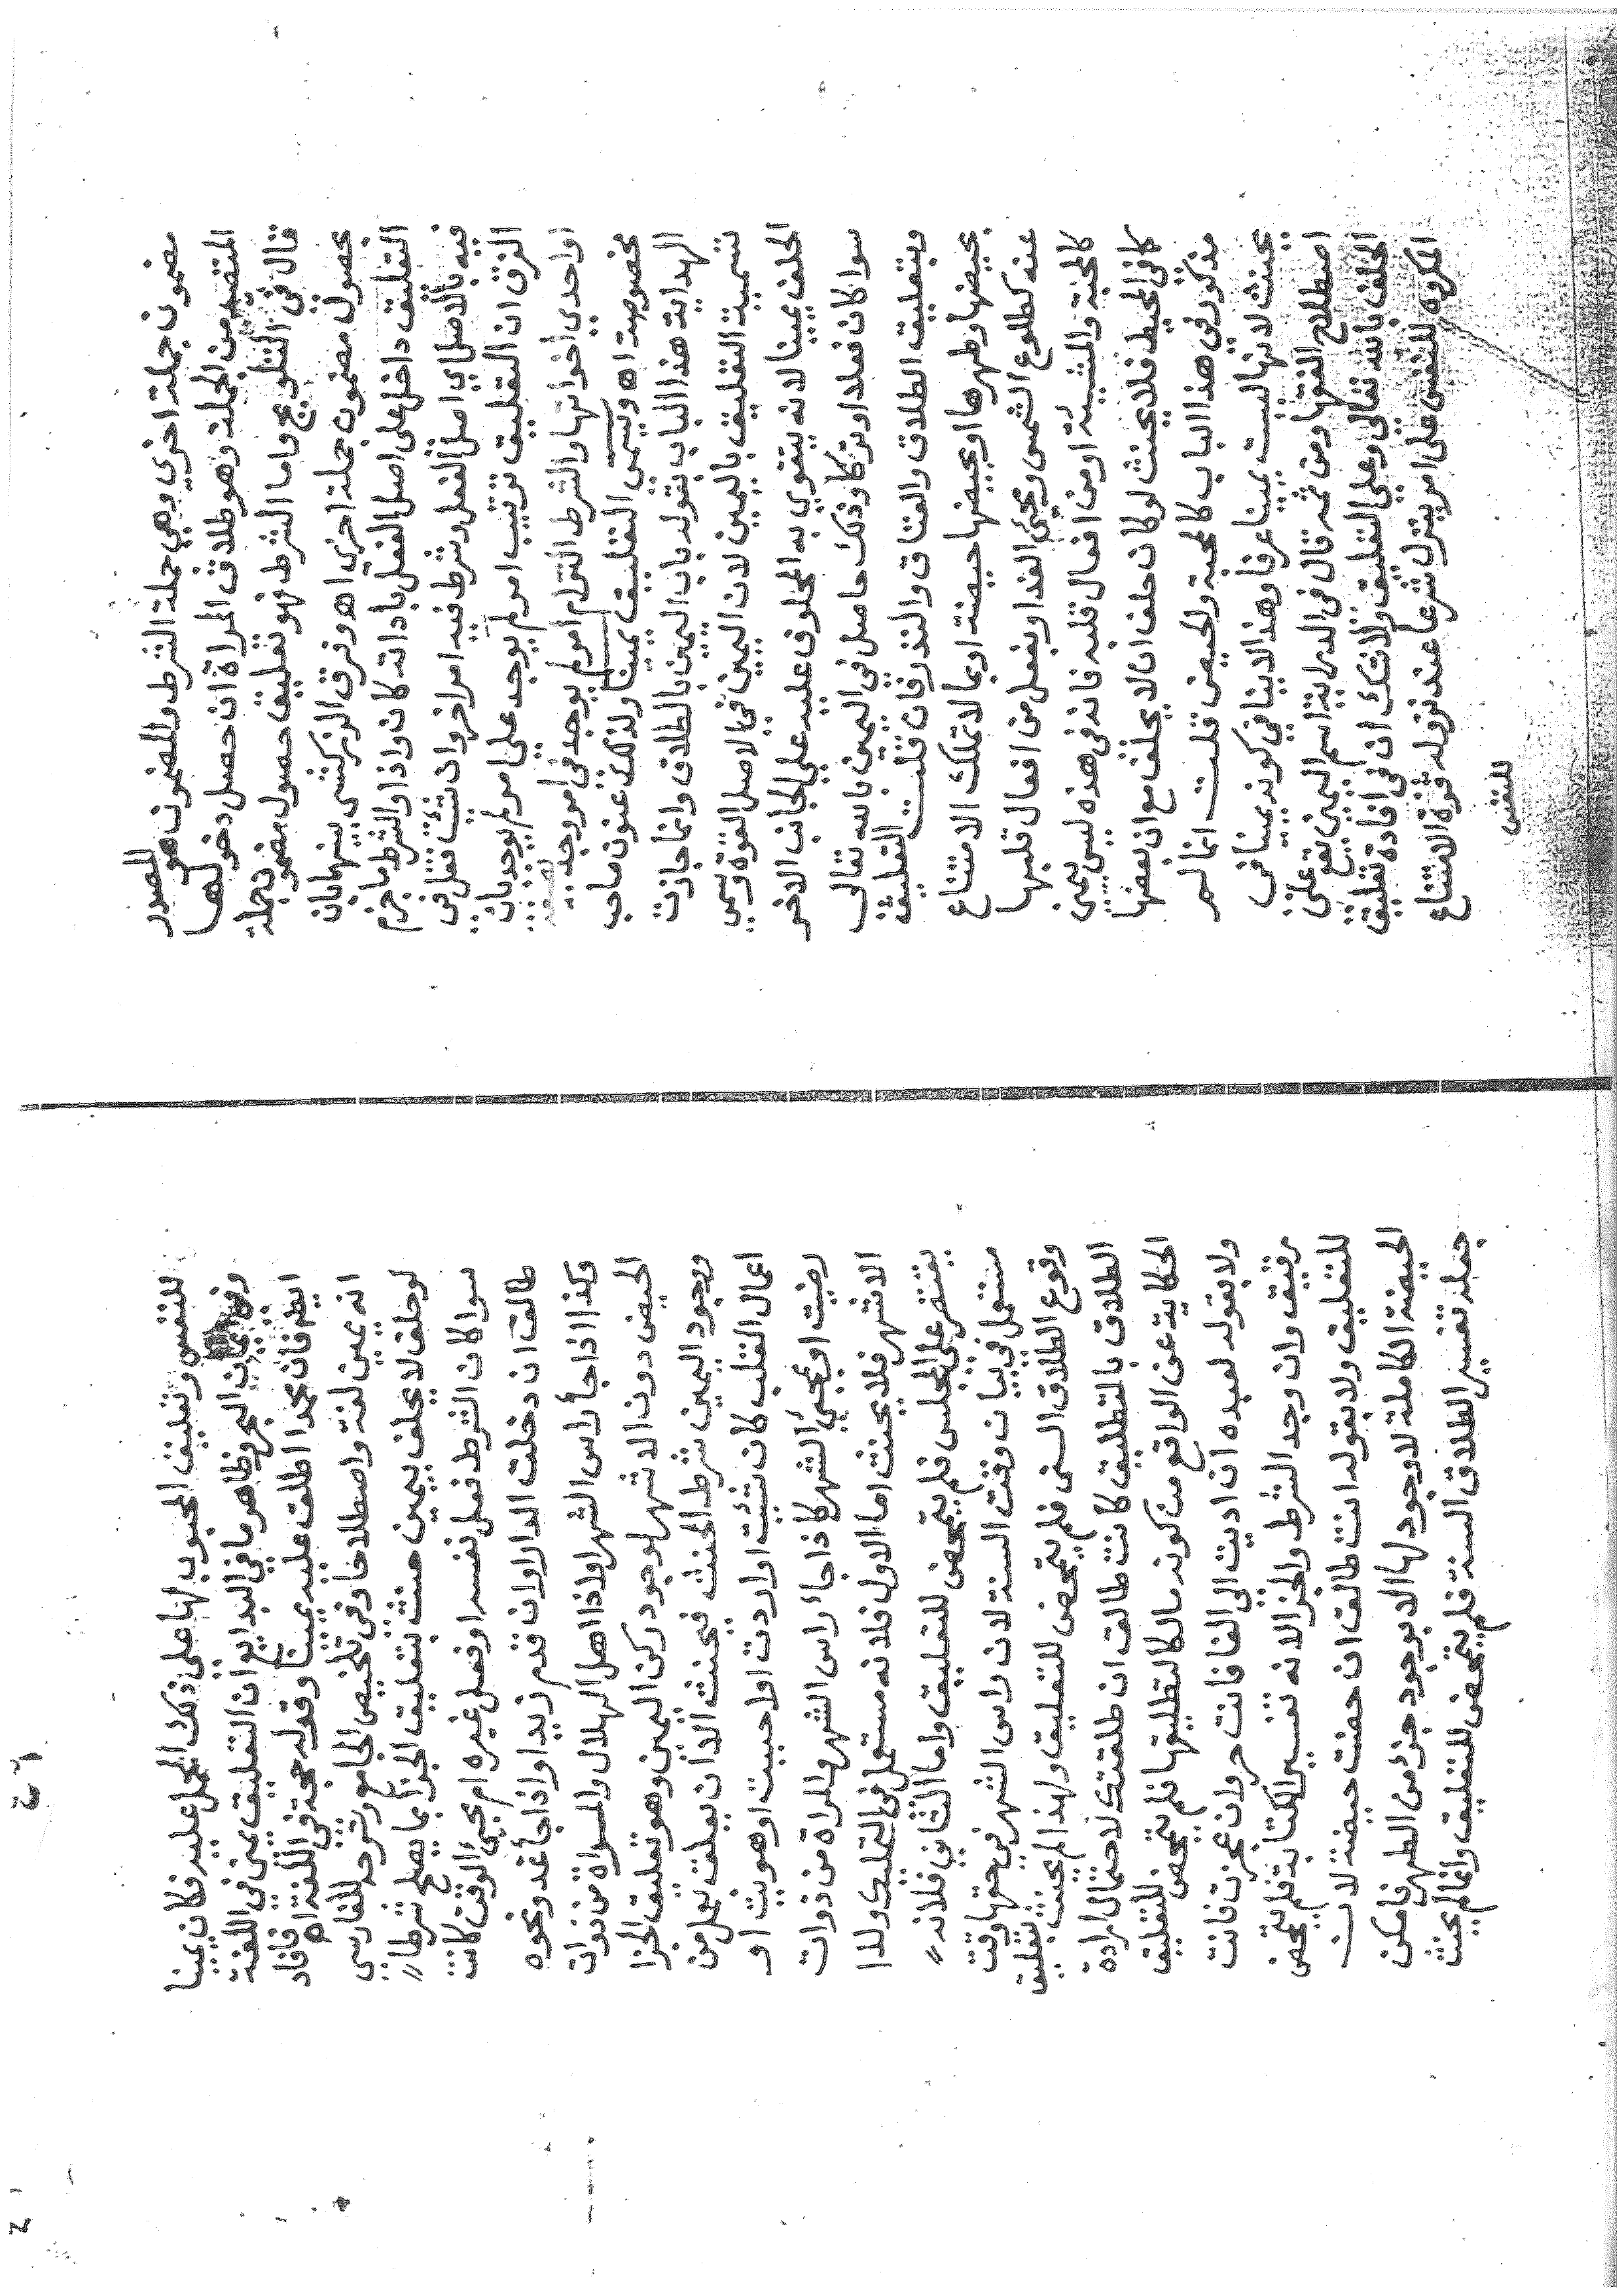 مضمون جملة اخري وهي جملة الشرط والمضمون هو المصور
المتضمن من الجملة وهو طلاق المراة ان حصل دخولها
قال في التلويح واما الشرط فهو تعليق حصول مضمون جملة
بحصول مضمون جملة اخري اه وفرق الزركشي بينهما بان
التعليق داخل علي اصل الفعل باداته كان واذا والشرط ما جزم
فيه بالاصل اي اصل الفعل وشرط فيه امرا اخر وان شئت فقل في
الفرق ان التعليق ترتيب امر لم يوجد علي امر لم يوجد بان
او احدي اخواتها والشرط التزام امر لم يوجد في امر وجد بصيغة
مخصوصة اه ويسمي التعليق يمينا ولذلك عنون صاحب
الهداية هذا الباب بقوله باب اليمين بالطلاق وانما جازت
تسمية التعليق باليمين لان اليمين في الاصل القوة وسمي
الحلف يمينا لانه يتقوي به المحلوف عليه علي الجانب الاخر
سوا كان فعلا او تركا وذلك حاصل في اليمين بالله تعالي
وبتعليق الطلاق والعتاق والنذر فان قلت التعليق
بحيضها وطهرها او بحيضها حيضة او بما لا تملك الامتناع
عنه كطلوع الشمس ومجئ الغد او بفعل من افعال قلبها
كالمحبة والمشيئة او من افعال قلبه فانه في هذه ليس يمين
كما في المحيط فلا يحنث لو كان حلف ان لا يحلف مع ان بعضها
مذكور في هذا الباب كالمحبة والحيض قلت انما لم
يحنث لانها ليست يمينا عرفا وهذا لا ينافي كونه يمينا في
اصطلاح الفقها ومن ثمه قال في الدراية اسم اليمين يقع علي
الحلف بالله تعالي وعلي التعليق ولا شك ان في افادة تعليق
المكروه للنفس علي امر يتزل شرعا عند نزوله قوة الامتناع
للنفس
للنفس وتعليق المحبوب لها علي ذلك الحمل عليه فكان يمينا
وفي البحر وظاهر ما في البدايع ان التعليق يمين في اللغة
ايضا فان محمدا اطلق عليه يمينا وقوله حجة في اللغة اه فافاد
انه يمين لغة واصطلاحا وفي تلخيص الجامع وشرحه للفارسي
لو حلف لا يحلف بيمين حنث بتعليق الجزا بما يصلح شرطا
سوا كان الشرط فعل نفسه او فعل غيره ام مجئ الوقت كانت
طالق ان دخلت الدار او ان قدم زيد او اذا جأ غد ونحوه
وكذا اذا جأ راس الشهر او اذا اهل الهلال والمراة من ذوات
الحيض دون الاشهر لوجود ركن اليمين وهو تعليق الجزا
ووجود اليمين شرط الحنث فيحنث الا ان يعلق بعمل من
اعمال القلب كان شئت او اردت او احببت او هويت او
رضيت او بمجئ الشهر كاذا جاء راس الشهر والمراة من ذوات
الاشهر فلا يحنث اما الاول فلانه مستعمل في التمليك ولذا
يقتصر علي المجلس فلم يتمحض للتعليق واما الثاني فلانه
مستعمل في بيان وقت السنة لان راس الشهر في حقها وقت
وقوع الطلاق السني فلم يتمحض للتعليق ولهذا لم يحنث بتعليق
الطلاق بالتطليق كانت طالق ان طلقتك لاحتمال ارادة
الحكاية عن الواقع من كونه مالكا لتطليقها فلم يتمحض للتعليق
ولا بقوله لعبده ان اديت الي الفا فانت حر وان عجزت فانت
رقيق وان وجد الشرط والجزا لانه تفسير الكتابة فلم يتمحض
للتعليق ولا بقوله انت طالق ان حضت حيضة لان
الحيضة الكاملة لا وجود لها الا بوجود جزء من الطهر فامكن
جعله تفسير الطلاق السنة فلم يتمحض للتعليق وانما لم يحنث